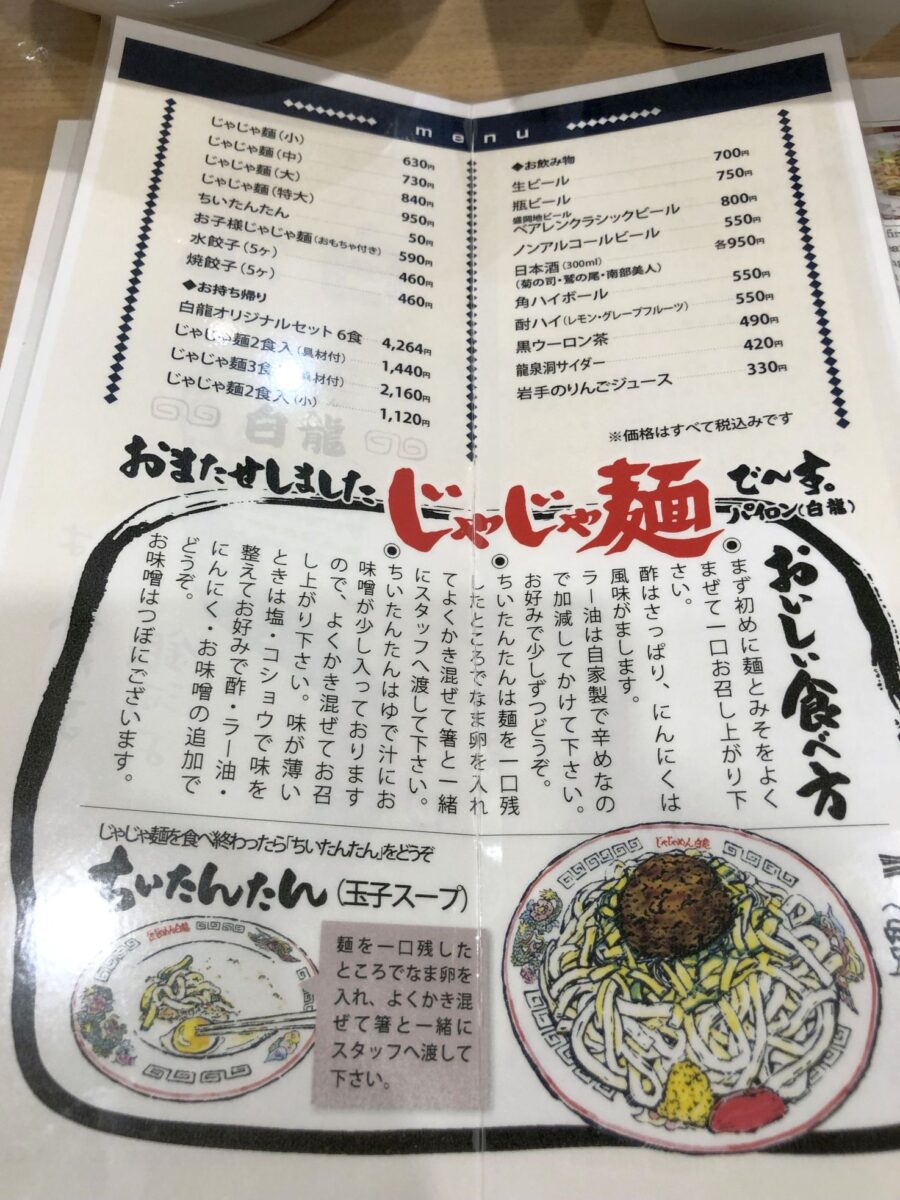 menu
じゃじゃ麺(小) 630円
じゃじゃ麺(中) 730円
じゃじゃ麺(大) 840円
じゃじゃ麺(特大) 950円
ちいたんたん 50円
お子様じゃじゃ麺(おもちゃ付き) 590円
水餃子(5ヶ) 460円
焼餃子(5ヶ) 460円
◆お持ち帰り
白龍オリジナルセット 6食 4,264円
じゃじゃ麺2食入(具材付) 1,440円
じゃじゃ麺3食 材付) 2,160円
じゃじゃ麺2食入(小) 1,120円
◆お飲み物
生ビール 700円
瓶ビール 750円
盛岡地ビール
ベアレンクラシックビール 800円
ノンアルコールビール 550円
日本酒(300ml) 各950円
(菊の司・鷲の尾・南部美人)
角ハイボール 550円
酎ハイ(レモン・グレープフルーツ) 550円
黒ウーロン茶 490円
龍泉洞サイダー 420円
岩手のりんごジュース 330円
※価格はすべて税込みです
白龍
おまたせしました じゃじゃ麺 で〜す。
パイロン(白龍)
おいしい食べ方
◉まず初めに麺とみそをよく
まぜて一口お召し上がり下
さい。
酢はさっぱり、にんにくは
風味がまします。
ラー油は自家製で辛めなの
で加減してかけて下さい。
お好みで少しずつどうぞ。
◉ちいたんたんは麺を一口残
したところでなま卵を入れ
てよくかき混ぜて箸と一緒
にスタッフへ渡して下さい。
◉ちいたんたんはゆで汁にお
味噌が少し入っております
ので、よくかき混ぜてお召
し上がり下さい。味が薄い
ときは塩・コショウで味を
整えてお好みで酢・ラー油・
にんにく・お味噌の追加で
どうぞ。
お味噌はつぼにございます。
じゃじゃ麺を食べ終わったら「ちいたんたん」をどうぞ
ちいたんたん(玉子スープ)
麺を一口残した
ところでなま卵を
入れ、よくかき混
ぜて箸と一緒に
スタッフへ渡して
下さい。
じゃじゃめん白龍
じゃじゃめん白龍